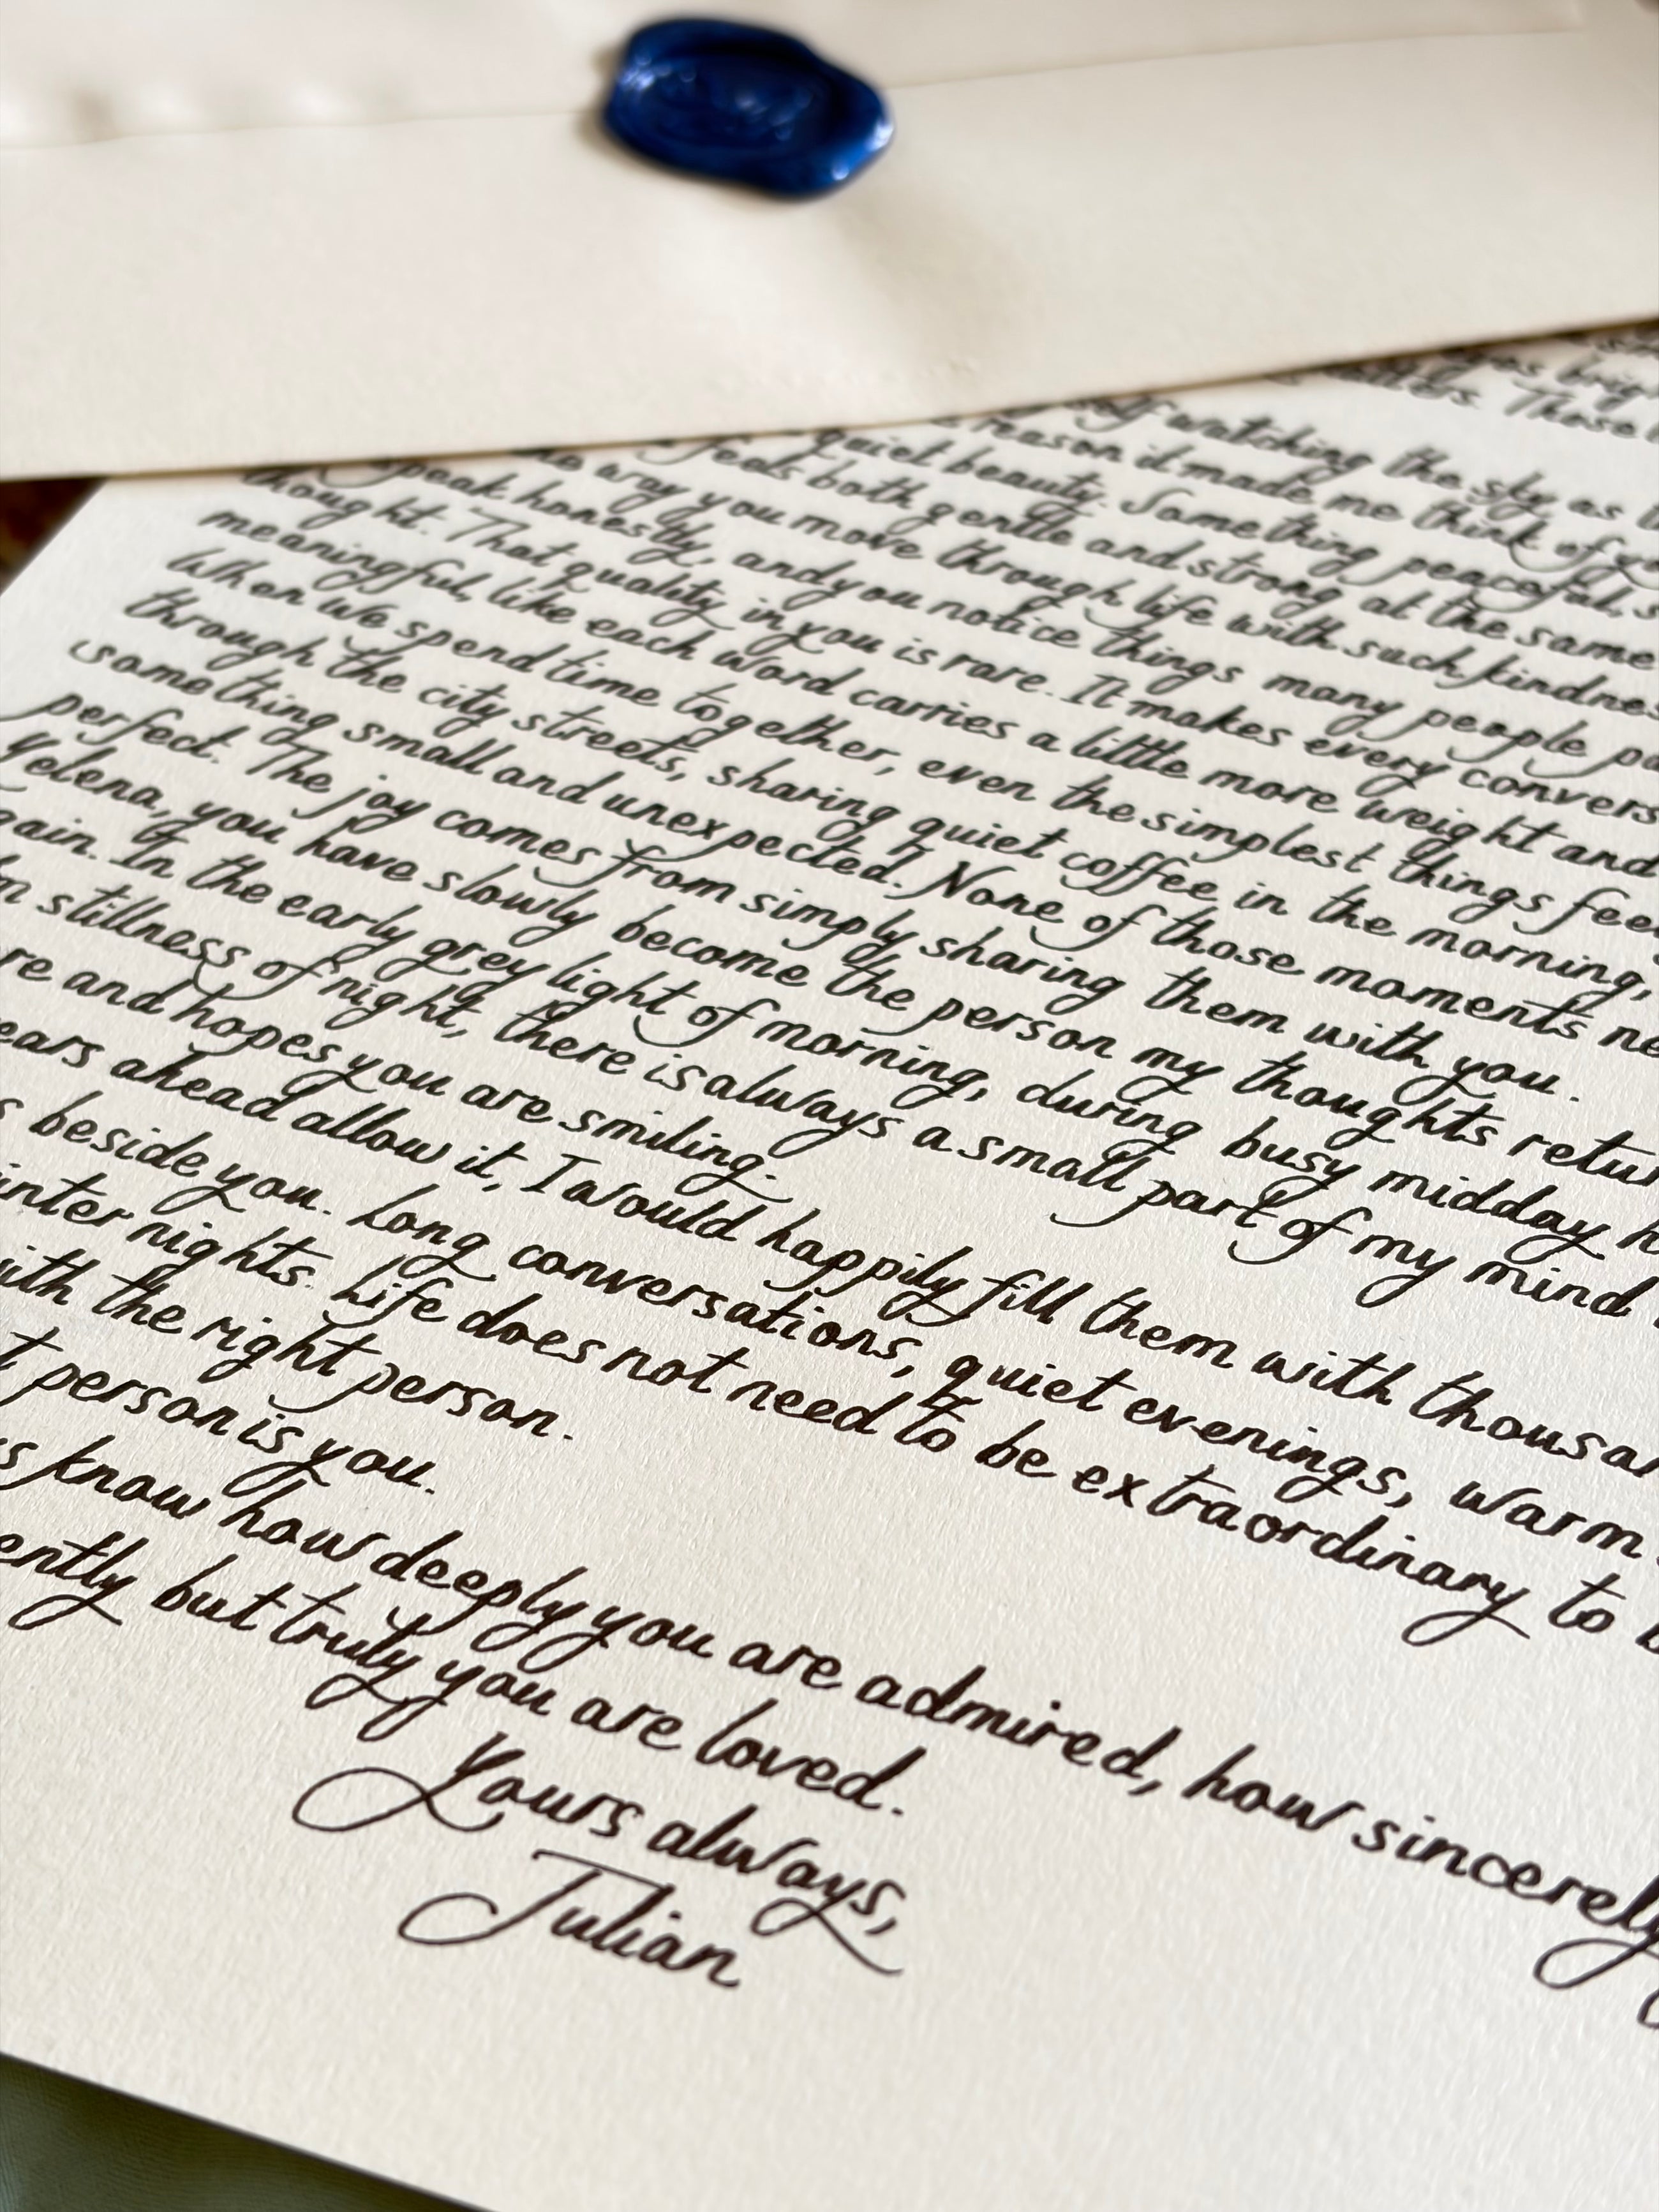 Those
watching the sky as
reason it made me think of
quiet beauty. Something peaceful,
feels both gentle and strong at the same
way you move through life with such kindnes
speak honestly, and you notice things many people pa
thought. That quality in you is rare. It makes every convers
meaningful, like each word carries a little more weight and
When we spend time together, even the simplest things fee
through the city streets, sharing quiet coffee in the morning,
something small and unexpected. None of those moments ne
perfect. The joy comes from simply sharing them with you.
Yelena, you have slowly become the person my thoughts retur
gain. In the early grey light of morning, during busy midday h
m stillness of night, there is always a small part of my mind
re and hopes you are smiling.
ears ahead allow it, I would happily fill them with thousan
s beside you. Long conversations, quiet evenings, warm
inter nights. Life does not need to be extraordinary to b
ith the right person.
t person is you.
s know how deeply you are admired, how sincerely
ently but truly you are loved.
Yours always,
Julian